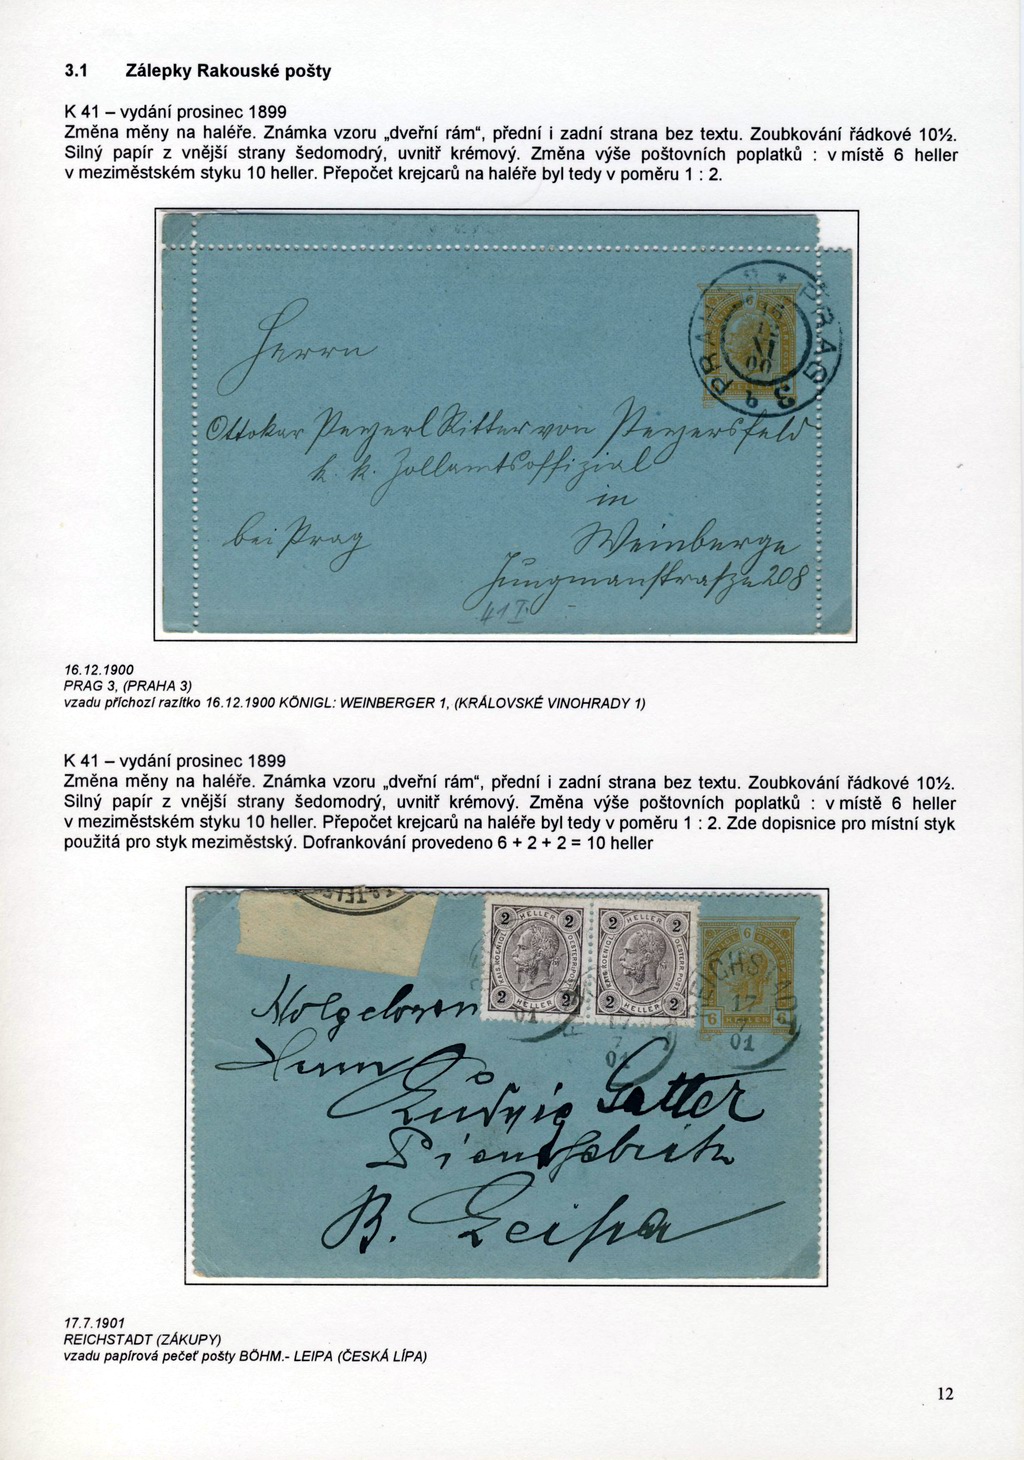 3.1 Zálepky Rakouské pošty
K 41 – vydání prosinec 1899
Změna měny na haléře. Známka vzoru „dveřní rám“, přední i zadní strana bez textu. Zoubkování řádkové 10½.
Silný papír z vnější strany šedomodrý, uvnitř krémový. Změna výše poštovních poplatků : v místě 6 heller
v meziměstském styku 10 heller. Přepočet krejcarů na haléře byl tedy v poměru 1 : 2.
PRAHA 3 PRAG 3
16
12
00
b
Herrn
Ottokar Peyerl Ritter von Peyersfeld
k. k. Zollamtsoffizial
in
bei Prag Weinberge
Jungmanstrasze 208
41 I.
16.12.1900
PRAG 3, (PRAHA 3)
vzadu příchozí razítko 16.12.1900 KÖNIGL: WEINBERGER 1, (KRÁLOVSKÉ VINOHRADY 1)
K 41 – vydání prosinec 1899
Změna měny na haléře. Známka vzoru „dveřní rám“, přední i zadní strana bez textu. Zoubkování řádkové 10½.
Silný papír z vnější strany šedomodrý, uvnitř krémový. Změna výše poštovních poplatků : v místě 6 heller
v meziměstském styku 10 heller. Přepočet krejcarů na haléře byl tedy v poměru 1 : 2. Zde dopisnice pro místní styk
použitá pro styk meziměstský. Dofrankování provedeno 6 + 2 + 2 = 10 heller
2 HELLER 2
KAIS. KOENIGL. OESTERR. POST
2 HELLER 2
2 HELLER 2
KAIS. KOENIGL. OESTERR. POST
2 HELLER 2
6
6 HELLER 6
REICHSTADT
17
7
01
Herrn
Ludwig Gatter
B. Leipa
17.7.1901
REICHSTADT (ZÁKUPY)
vzadu papírová pečeť pošty BÖHM.- LEIPA (ČESKÁ LÍPA)
12